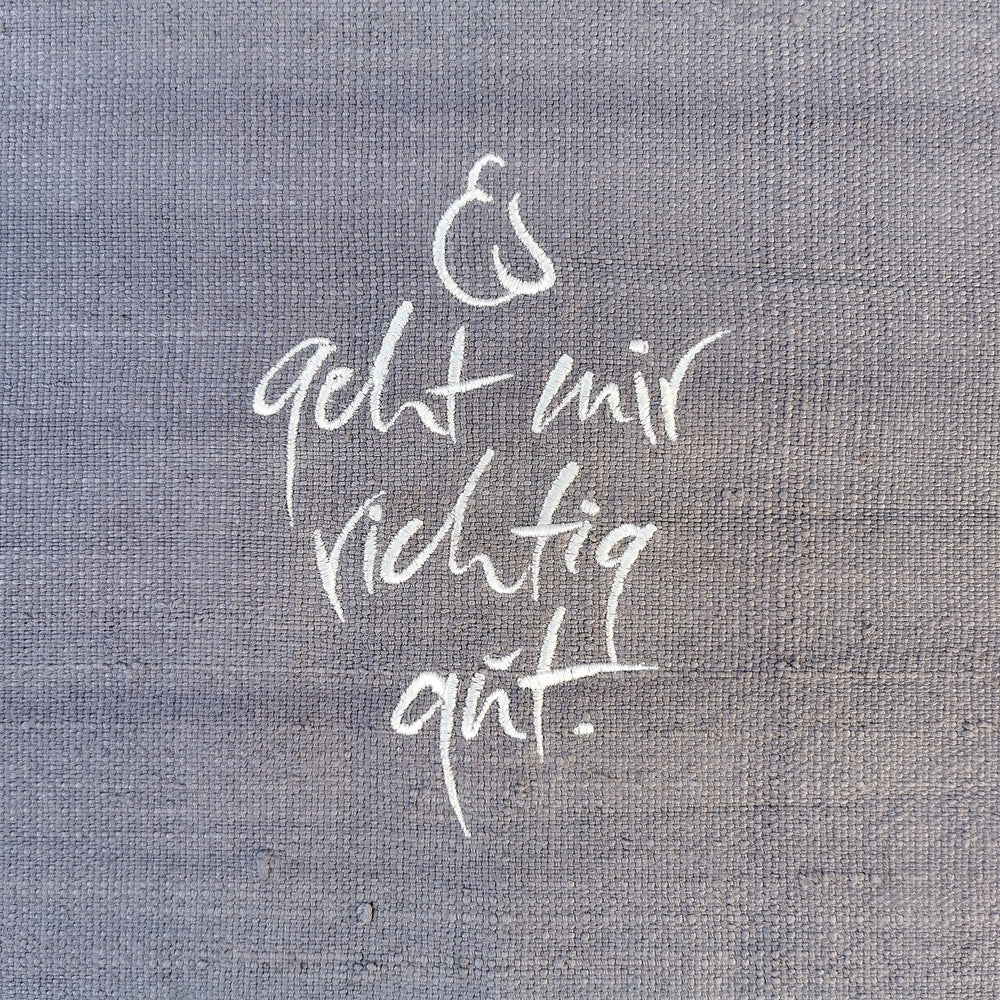 Es
geht mir
richtig
gut.